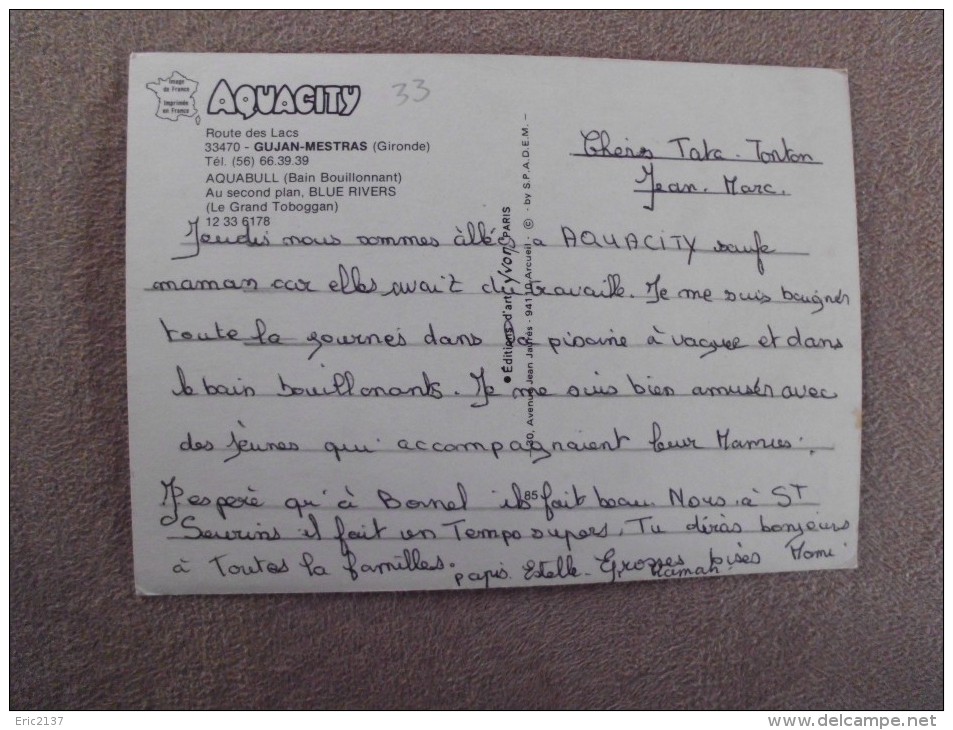 Image
de France
Imprimée
en France
AQUACITY
33
Route des Lacs
33470 - GUJAN-MESTRAS (Gironde)
Tél. (56) 66.39.39
AQUABULL (Bain Bouillonnant)
Au second plan, BLUE RIVERS
(Le Grand Toboggan)
12 33 6178
Chers Tata - Tonton
Jean. Marc.
Jeudis nous sommes àllés a AQUACITY saufe
maman car elles avait du travaille. Je me suis baugner
toute la journes dans la piscine à vague et dans
le bain bouillonants. Je me suis bien amusér avec
des jeunes qui accompagnaient leur Mamies.
J'esperè qu'à Bornel il fait beau. Nous à ST
Seurins il fait un Temps supers. Tu diràs bonjours
à Toutes la familles.
papis. Estelle. Grosses bisès Mami.
Maman.
● Éditions d'art yvon PARIS
80, Avenue Jean Jaurès - 94110 Arcueil - © - by S.P.A.D.E.M. -
85
Eric2137
delcampe.net